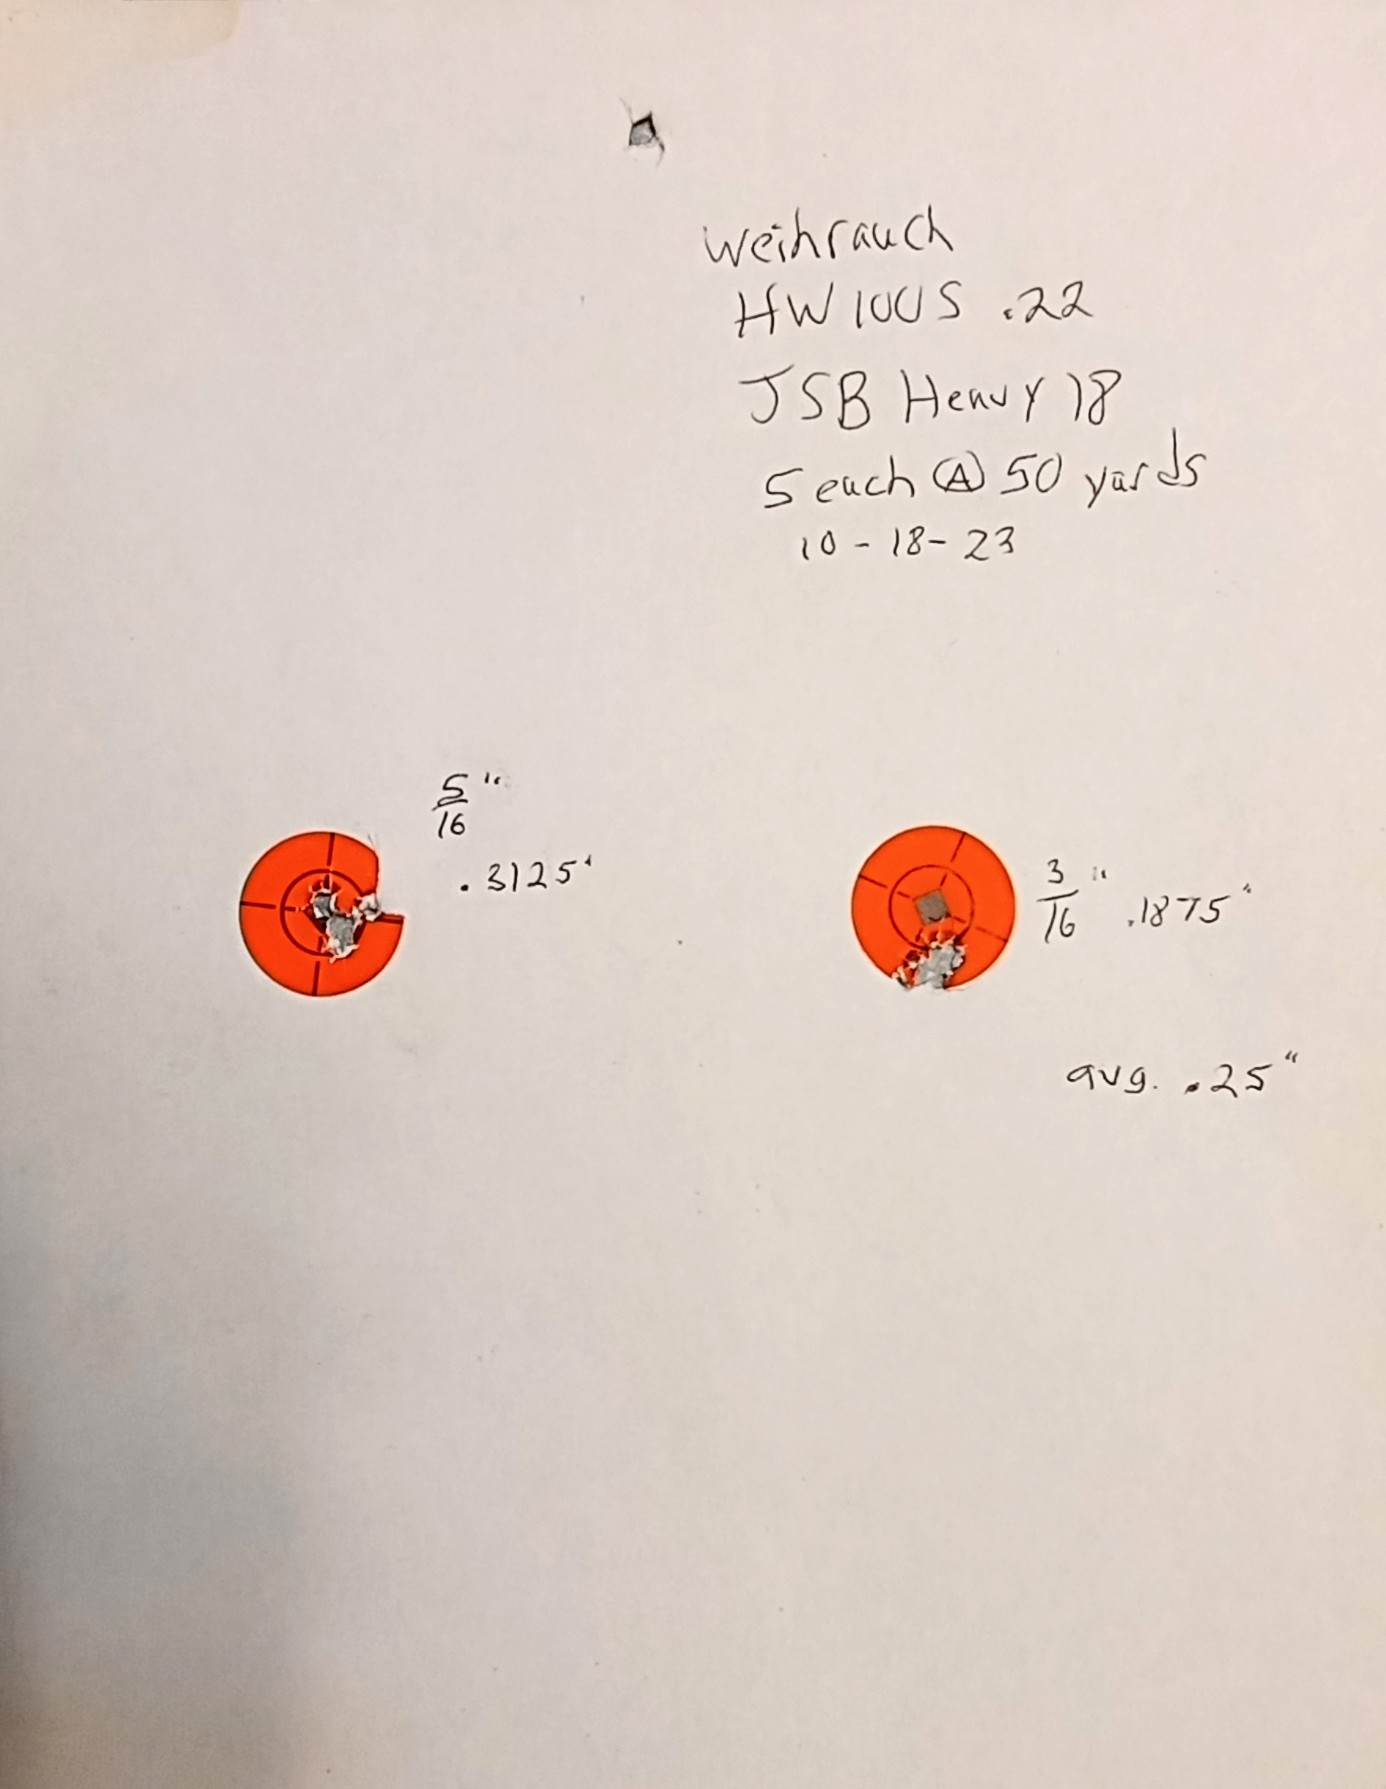 Weihrauch
HW 100 S .22
JSB Heavy 18
5 each @ 50 yards
10-18-23
5/16"
.3125"
3/16" .1875"
avg. .25"